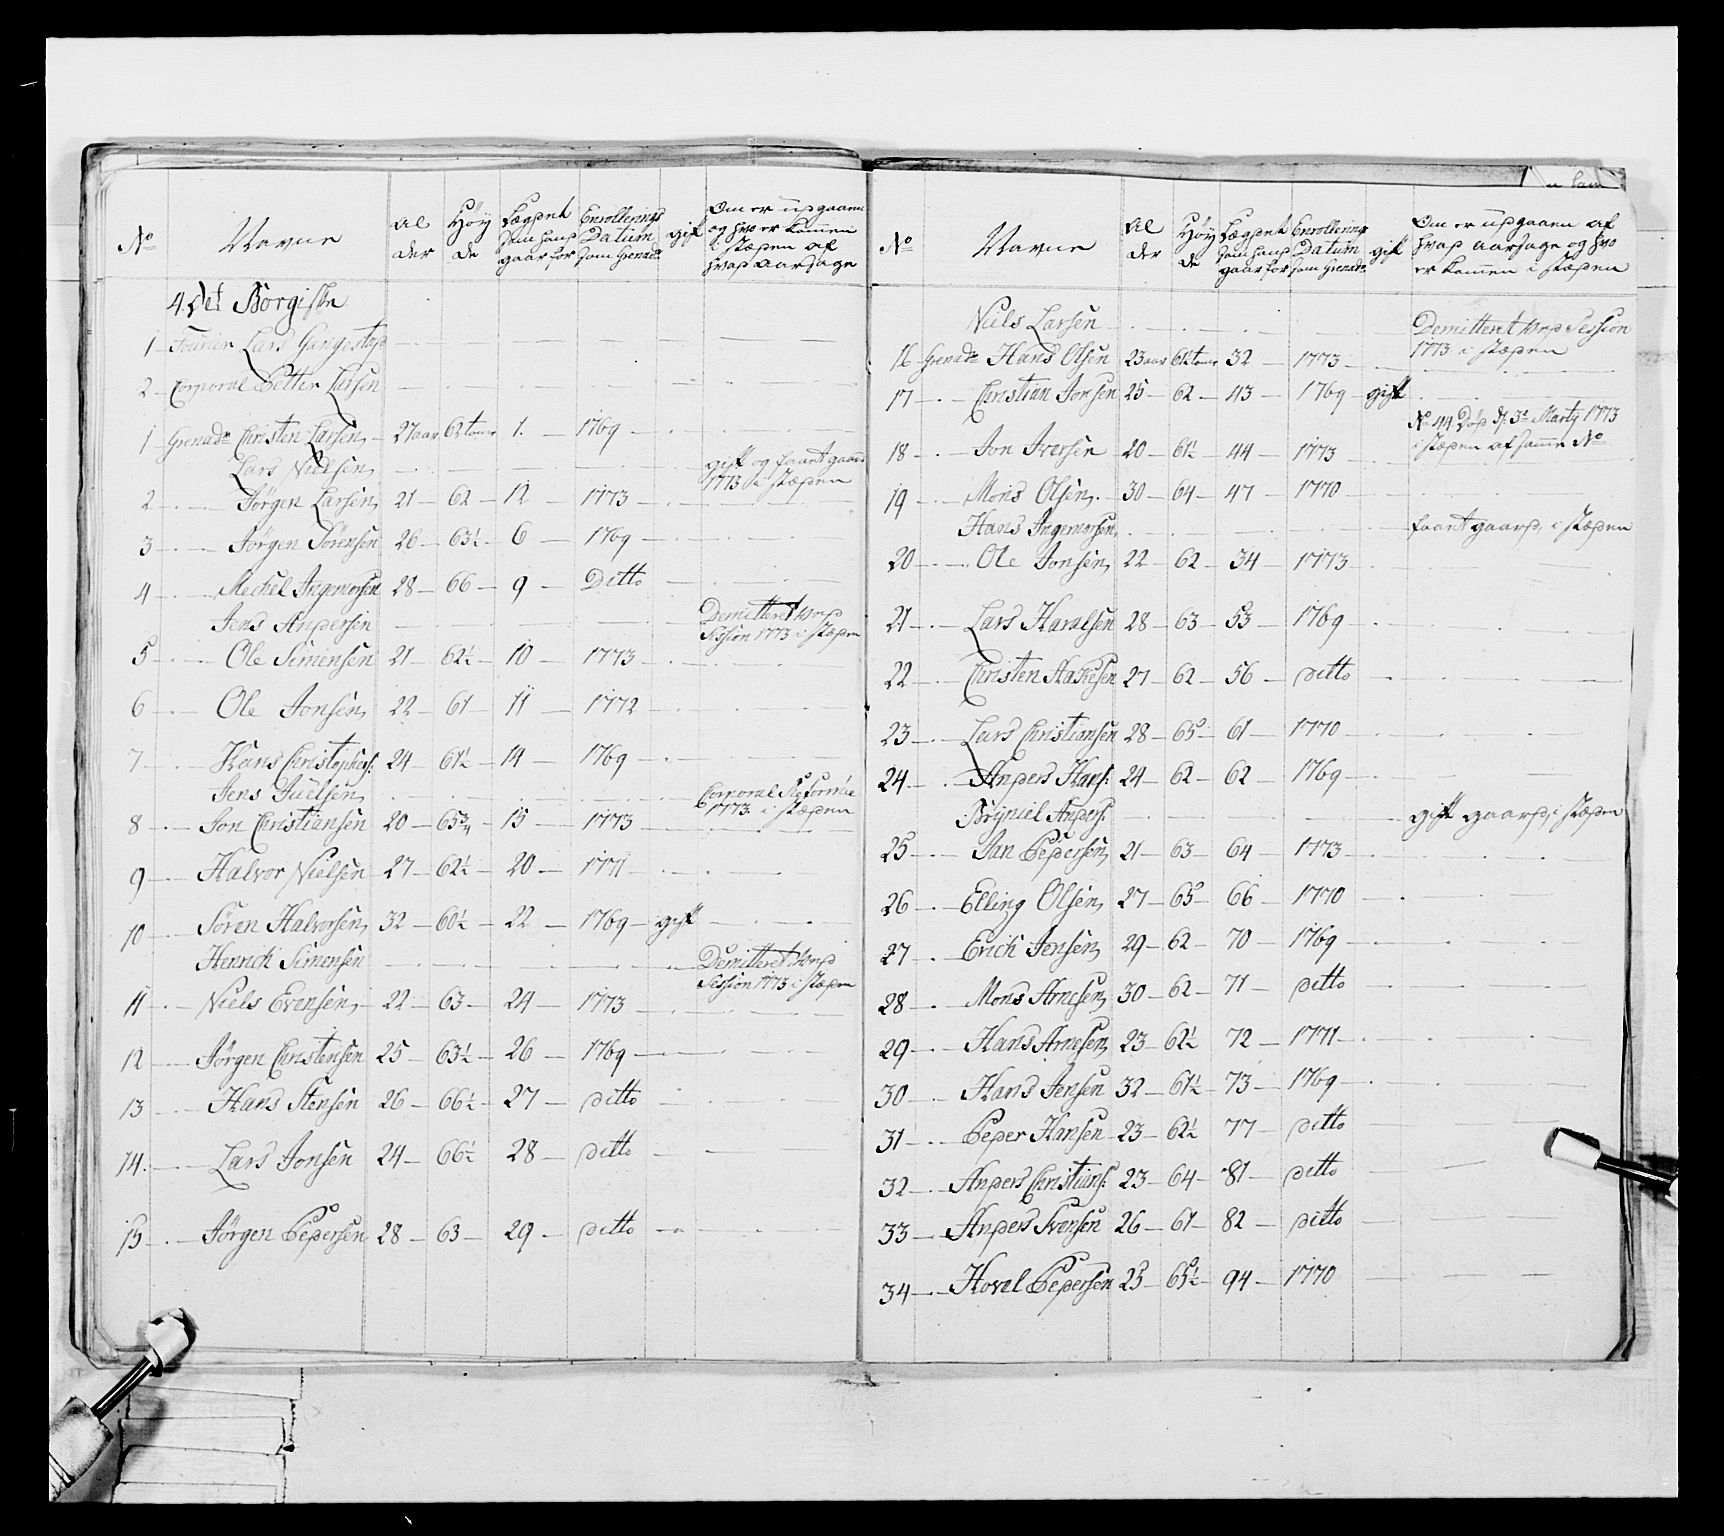 No Navne Al der Höy de Lægdet som hand gaar for Enrollerings Datum som Grenadr gift Om er upgaaen og hvo er kommen i stæden af hvad aarsage
4det Borgiske
1 Fourier Lars Gangestad
2 Corporal Petter Larsen
1 Grenadr Christen Larsen 27 aar 62 tomr 1. 1769
Lars Nielsen gift og faaet gaard 1773 i stæden
2 Jörgen Larsen 21 62 12 1773
3 Jörgen Sörensen 26 63½ 6 1769
4 Mechel Ingemorsen 28 66 9 Ditto
Jens Andersen Demitteret ved Session 1773 i stæden
5 Ole Simensen 21 62½ 10 1773
6 Ole Jonsen 22 61 11 1772
7 Hans Christophers: 24 61½ 14 1769
Jens Juelsen Corporal Reformé 1773. i stæden
8 Jon Christiansen 20 65¾ 15 1773
9 Halvor Nielsen 27 62½ 20 1771
10 Sören Halvorsen 32 60½ 22 1769 gift
Henrich Simensen Demitteret ved Session 1773 i stæden
11 Niels Evensen 22 63 24 1773
12 Jörgen Christensen 25 63½ 26 1769
13 Hans Stensen 26 66½ 27 ditto
14. Lars Jonsen 24 66½ 28 ditto
15 Jörgen Pedersen 28 63 29 ditto
No Navne Al der Höy de Lægdet som hand gaar for Enrollerings Datum som Grenadr gift Om er upgaaen af hvad aarsage og hvo er kommen i stæden
Niels Larsen Demitteret ved Session 1773. i stæden
16 Grenadr Hans Olsen 23 aar 61½ tomr 32 1773
17 Christian Jonsen 25 62 43 1769 gift
No 44 Död d: 3e Marty 1773 i stæden af samme No
18 Jon Iversen 20 61½ 44 1773
19 Mons Olsen 30 64 47 1770
Hans Ingemorsen faaet gaard, i stæden
20 Ole Jonsen 22 62 34 1773
21 Lars Haralsen 28 63 53 1769
22 Christen Hakesen 27 62 56 ditto
23 Lars Christiansen 28 65 61 1770
24 Anders Hans: 24 62 62 1769
Brÿniel Anders: gift gaard, i stæden
25 Jan Pedersen 21 63 64 1773
26 Elling Olsen 27 65 66 1770
27 Erich Jensen 29 62 70 1769
28 Mons Arnesen 30 62 71 ditto
29 Hans Arnesen 23 62½ 72 1771
30 Hans Jensen 32 61½ 73 1769
31 Peder Hansen 23 62½ 77 ditto
32 Anders Christians: 23 64 81 ditto
33 Anders Svensen 26 61 82 ditto
34 Hovel Pedersen 25 65½ 94 1770